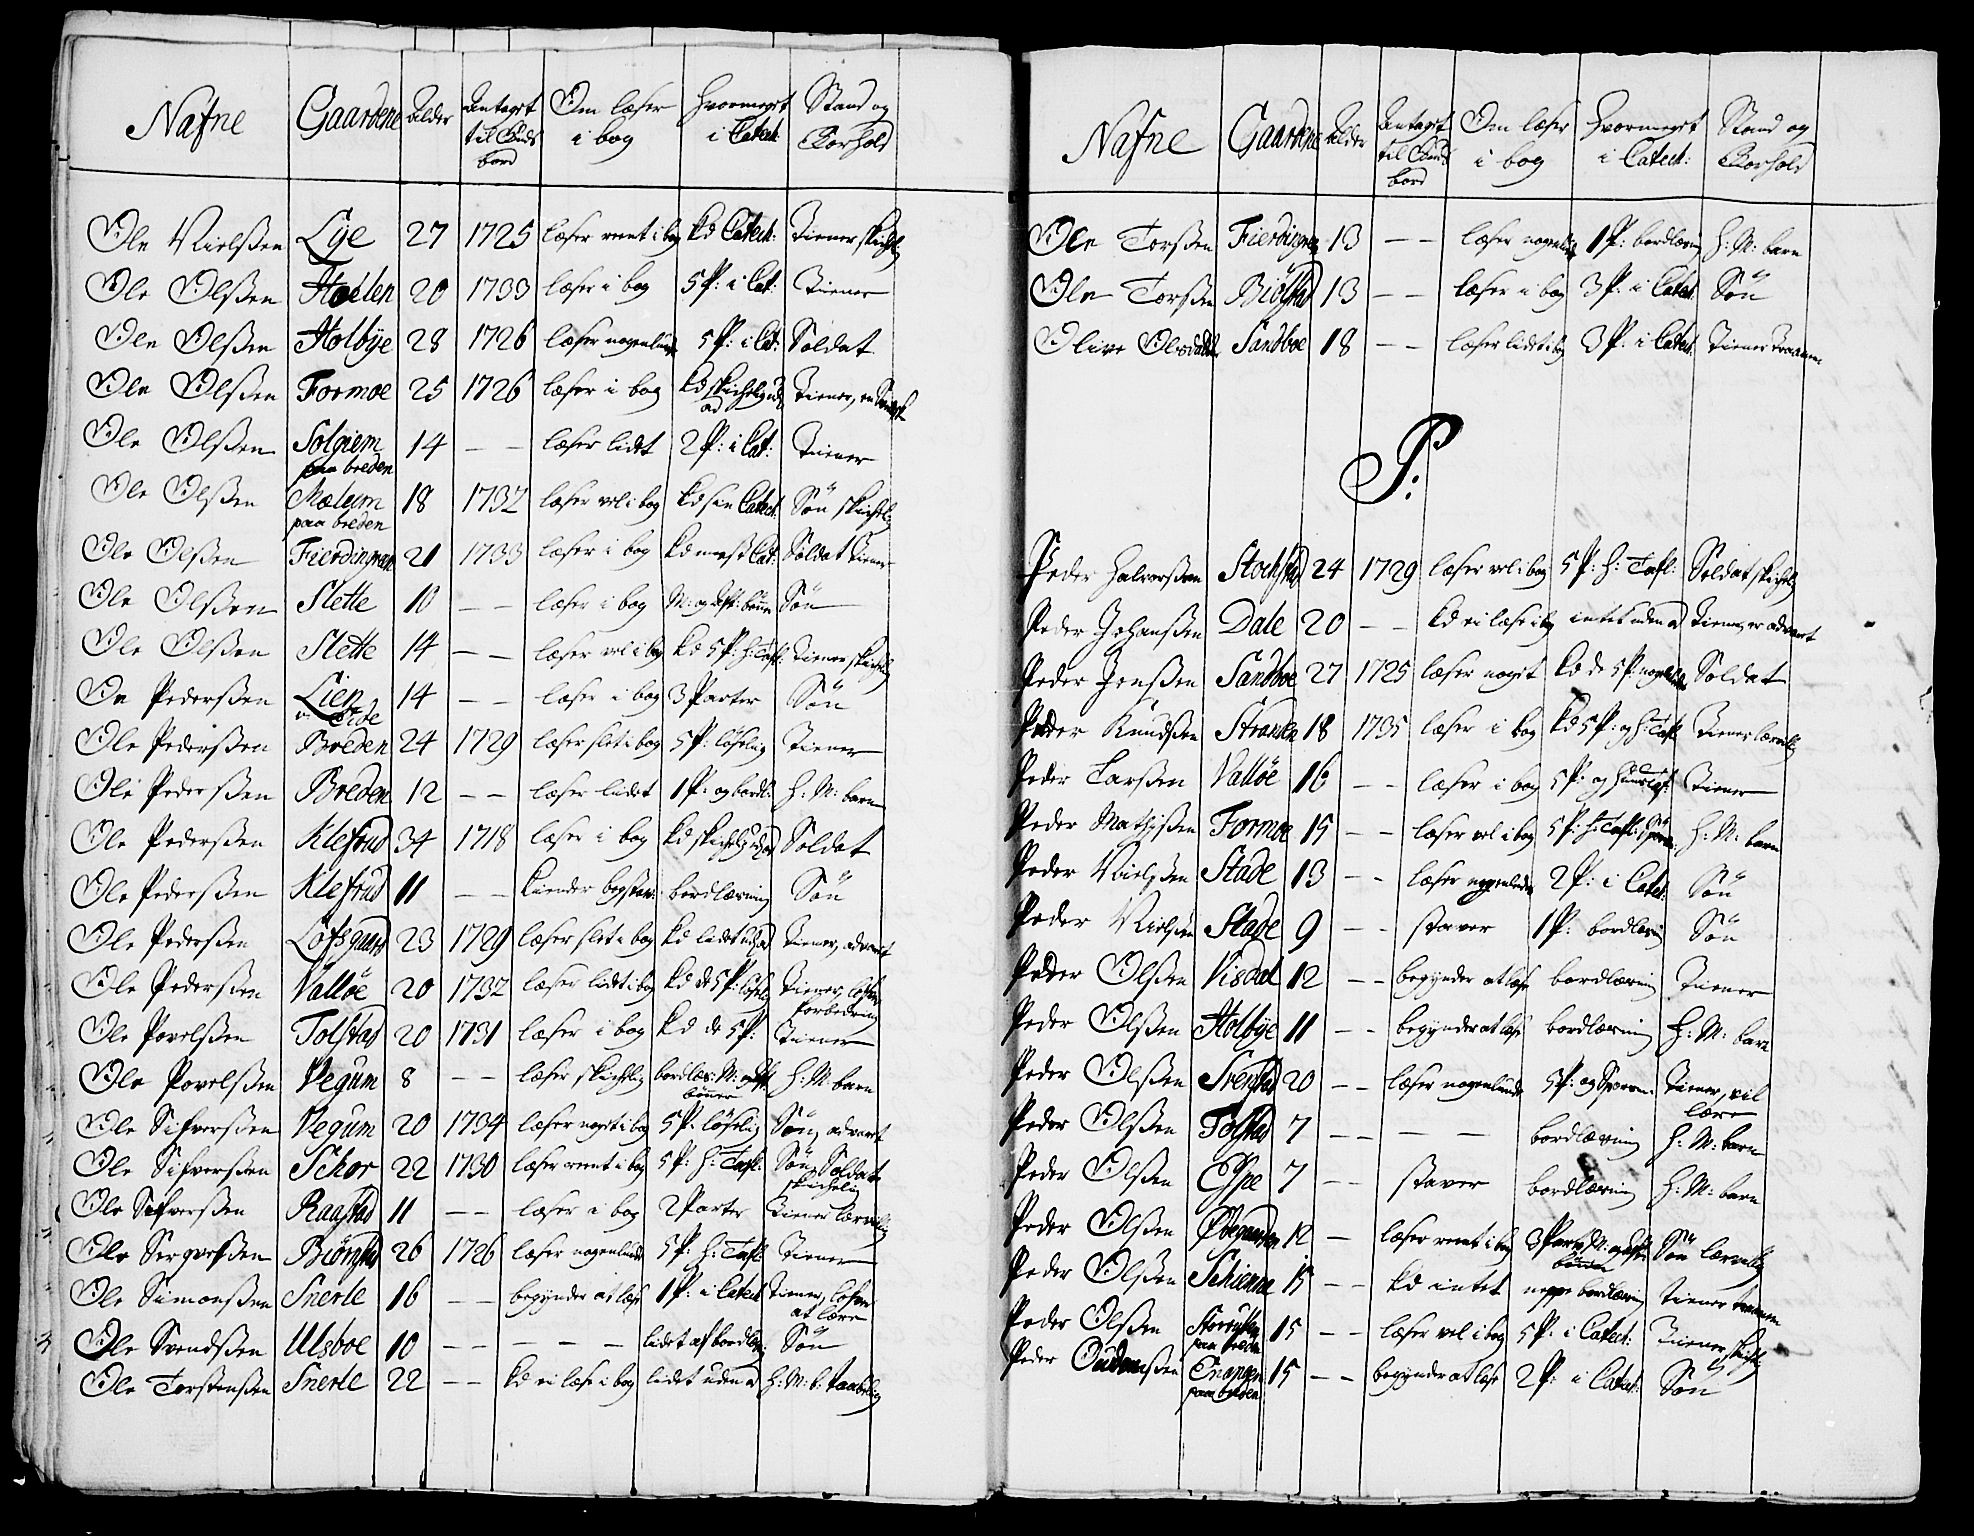 Nafne Gaardene Alder Antaget til Guds bord Om læser i bog Hvormeget i Catech: Stand og Forhold
Ole Nielsßen Lye 27 1725 læser rent i bog kd Catech: Tiener skichelig
Ole Olsßen Hoelen 20 1733 læser i bog 5 P: i Cat: Tiener
Ole Olsßen Holbye 28 1726 læser nogenlunde 5 P: i Cat: Soldat
Ole Olsßen Formoe 25 1726 læser i bog kd skichelig ud ad Tiener,
Ole Olsßen Solgiem paa breden 14 – – læser lidet 2 P: i Cat: Tiener
Ole Olsßen Mælum paa breden 18 1732 læser vel i bog kd sin Catech: Søn skichelig
Ole Olsßen Fierdingran 21 1733 læser i bog kd meest Cat: Soldat Tiener
Ole Olsßen Slette 10 – – læser i bog M: og Aft: bønn Søn
Ole Olsßen Slette 14 – – læser vel i bog kd 5 P: H: Tafl: Tiener skichelig
Ole Pedersßen Lien 14 – – læser i bog 3 Parter Søn
Ole Pedersßen Breden 24 1729 læser slet i bog 5 P: løselig Tiener
Ole Pedersßen Breden 12 – – læser lidet 1 P: og bordl: H: M: barn
Ole Pedersßen Klefrud 34 1718 læser i bog kd skichelig ud ad Soldat
Ole Pedersßen Klefrud 11 – – kiender bogstav: bordlæsning Søn
Ole Pedersßen Lofsgaard 23 1729 læser slet i bog kd lidet ud ad Tiener, advart
Ole Pedersßen Valløe 20 1732 læser lidet i bog kd de 5 P: løselig Tiener, lofver forbedring
Ole Povelsßen Tolstad 20 1731 læser i bog kd de 5 P: Tiener
Ole Povelsßen Vegum 8 – – læser skichelig bordlæs: M: og Aft bønner H: M: barn
Ole Sifversßen Vegum 20 1734 læser noget i bog 5 P: løselig Søn, advart
Ole Sifversßen Schor 22 1730 læser rent i bog 5 P: H: Tafl: Søn, Soldat skichelig
Ole Sifversßen Raastad 11 – – læser i bog 2 Parter Tiener lærvillig
Ole Biørnstad 26 1726 læser nogenlunde 5 P: H: Tafl: Tiener
Ole Simonsßen Snerle 16 – – begynder at læse 1 P: i Catech: Tiener, lofver at lære
Ole Svendsßen Ulsboe 10 – – – – – lidet af bordlæs: Søn
Ole Torstensßen Snerle 22 – – kd ei læse i bog lidet uden ad H: M: b: taabelig
Nafne Gaardene Alder Antaget til Guds bord Om læser i bog Hvormeget i Catech: Stand og Forhold
Ole Torsßen Fierdingran 13 – – læser nogenlunde 1 P: bordlæsning H: M: barn
Ole Torsßen Biølstad 13 – – læser i bog 3 P: i Catech: Søn
Olive Olsdatter Sandboe 18 – – læser lidet i bog 3 P: i Catech: Tiener
P:
Peder Halvorsßen Stochstad 24 1729 læser vel i bog 5 P: H: Tafl: Soldat skichelig
Peder Johansßen Dale 20 – – kd ei læse i bog intet uden ad Tiener, er advart
Peder Jensßen Sandboe 27 1725 læser noget kd de 5 P: nogenlunde Soldat
Peder Knudsßen 18 1735 læser i bog kd 5 P: og H: Tafl Tiener lærvillig
Peder Larsßen Valløe 16 – – læser i bog 5 P: og Huustafl: Tiener
Peder Mathisßen Formoe 15 – – læser vel i bog 5 P: H: Tafl: H: M: barn
Peder Nielsßen Stade 13 – – læser nogenlunde 2 P: i Catech: Søn
Peder Nielsßen Stade 9 – – staver 1 P: bordlæsning Søn
Peder Olsßen Visdal 12 – – begynder at læse bordlæsning Tiener
Peder Olsßen Holbye 11 – – begynder at læse bordlæsning H: M: barn
Peder Olsßen 20 – – læser nogenlunde 5 P: og Spørsm: Tiener, vil lære
Peder Olsßen Tolstad 7 – – – – bordlæsning H: M: barn
Peder Olsßen Espe 7 – – staver bordlæsning H: M: barn
Peder Olsßen 12 – læser rent i bog 3 Parter M: og Aften bønner Søn lærvillig
Peder Olsßen Schienna 15 – – kd intet neppe bordlæsning Tiener
Peder Olsßen paa breden 15 – – læser vel i bog 5 P: i Catech: Tiener, skichelig
Peder Oudensßen Enangen paa breden 15 – – begynder at læse 2 P: i Catech: Søn